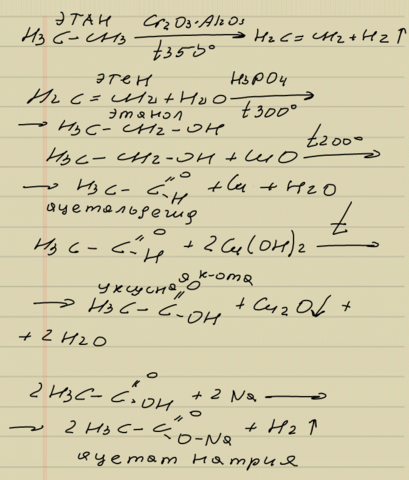 этан
H3C-CH3 Cr2O3·Al2O3 t350° → H2C=CH2+H2↑
этен
H2C=CH2+H2O H3PO4 t300° →
этанол
→ H3C-CH2-OH
H3C-CH2-OH+CuO t200° →
→ H3C-C=O-H +Cu+H2O
ацетальдегид
H3C-C=O-H + 2Cu(OH)2 t →
уксусная к-ота
→ H3C-C=O-OH + Cu2O↓ +
+ 2H2O
2H3C-C=O-OH + 2Na →
→ 2H3C-C=O-O-Na + H2↑
ацетат натрия